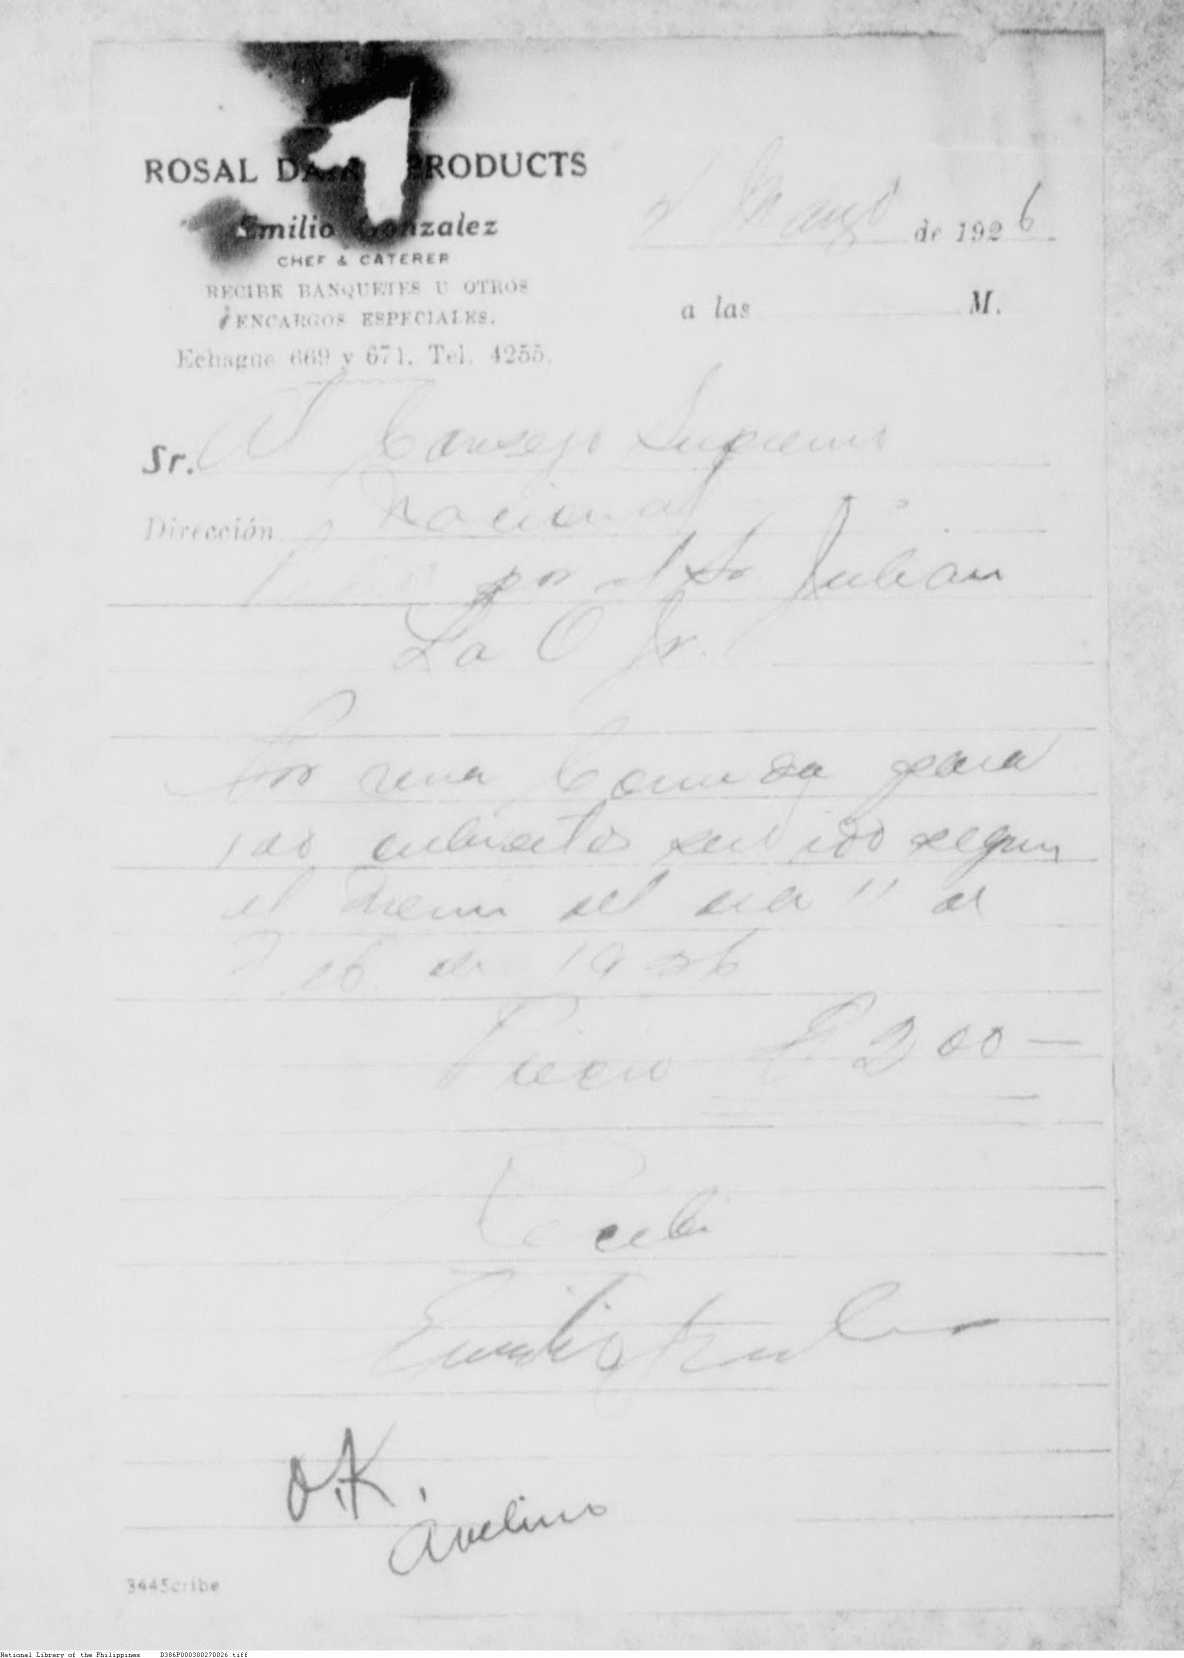 ROSAL PRODUCTS
Emilio Gonzalez
CHEF & CATERER
RECIBE BANQUETES U OTROS
ENCARGOS ESPECIALES.
Echague 669 y 671. Tel. 4255.
Marzo de 1926
a las M.
Sr. Al Consejo Supremo
Dirección Nacional
por el Sr Julian
La O Jr.
Por una Comida para
100 cubiertos servido segun
el menu del dia 11 de
de 1926
Precio ₱ 200—
Recibi
Emilio Gonzalez
O.K.
Avelino
3445cribe
National Library of the Philippines D386P000300270026.tiff